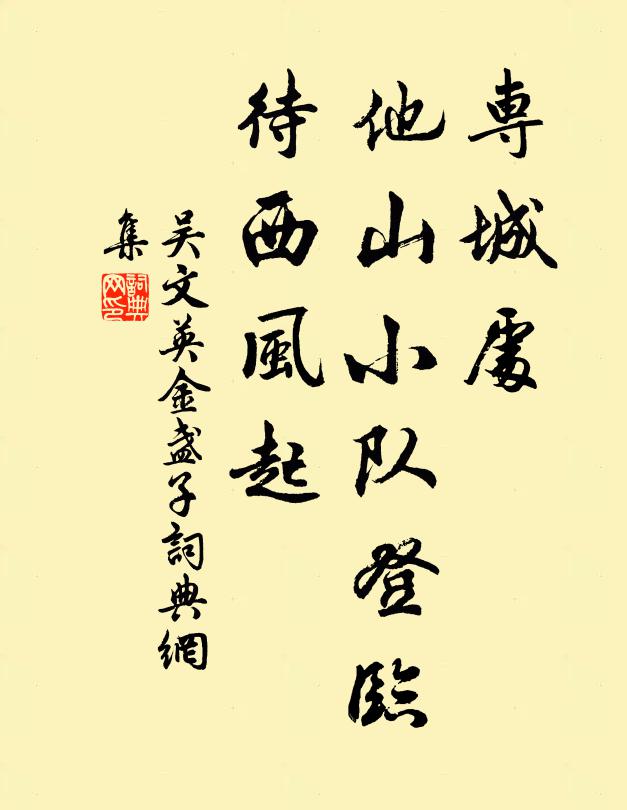 専城處
他山小队登臨
待西風起
吴文英金盏子詞典網
集
詞典
网印